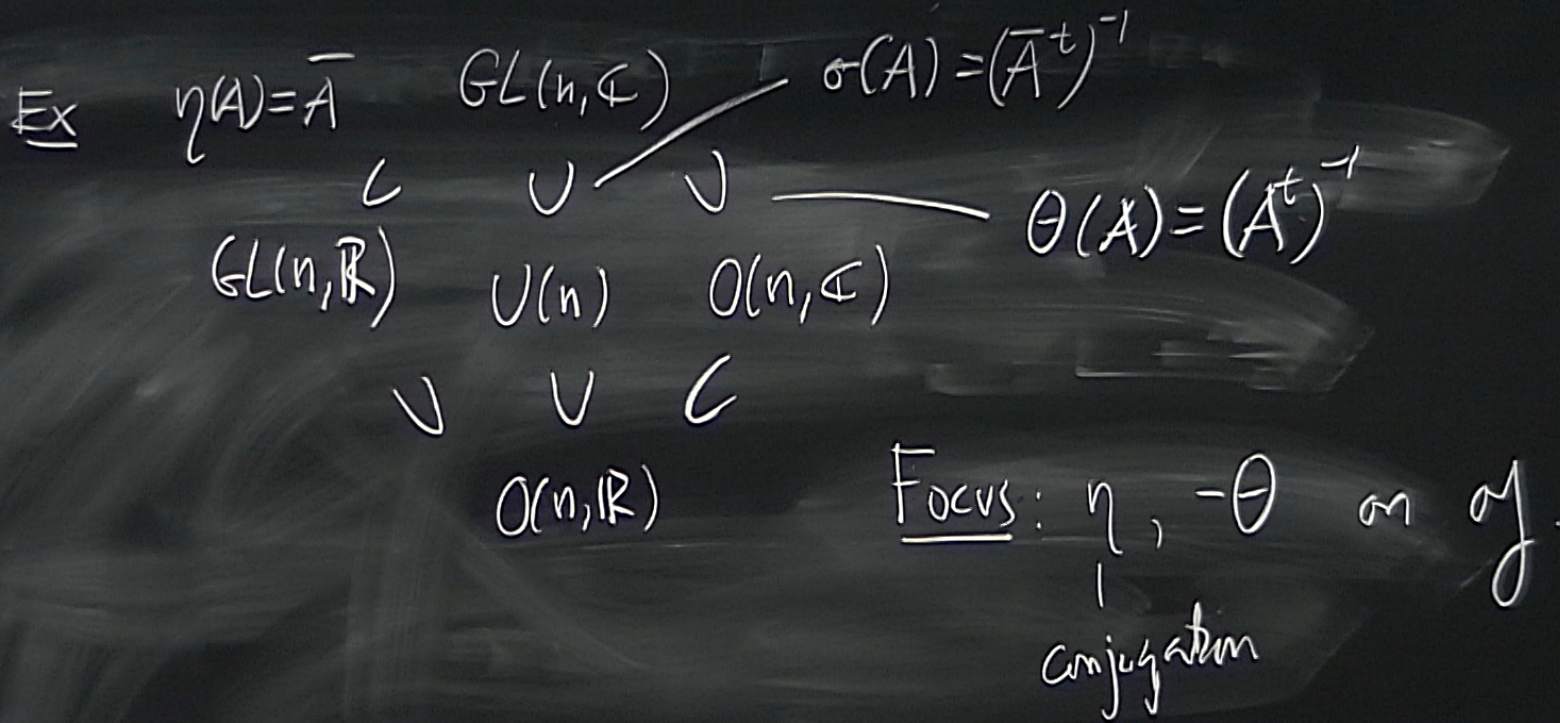 Ex η(A)=Ā GL(n,ℂ) σ(A)=(Ā^t)^{-1}
⊂ ∪ ∪ θ(A)=(A^t)^{-1}
GL(n,ℝ) U(n) O(n,ℂ)
∪ ∪ ⊂
O(n,ℝ)
Focus: η, -θ on 𝔤.
conjugation